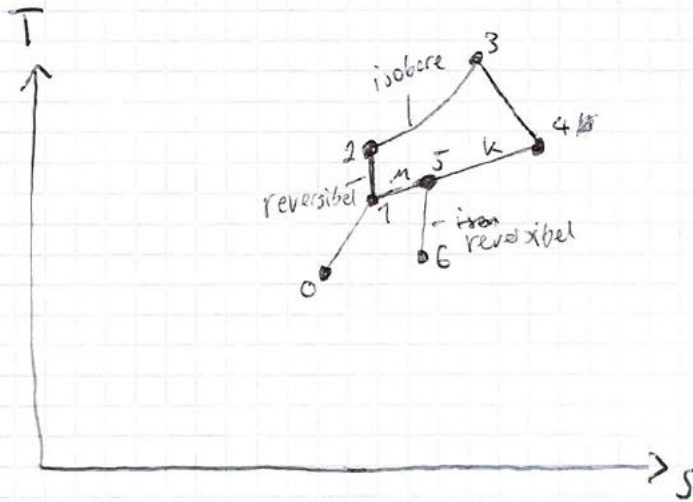 T
3
isobare
4
2
5
k
M
reversibel
1
reversibel
6
0
S